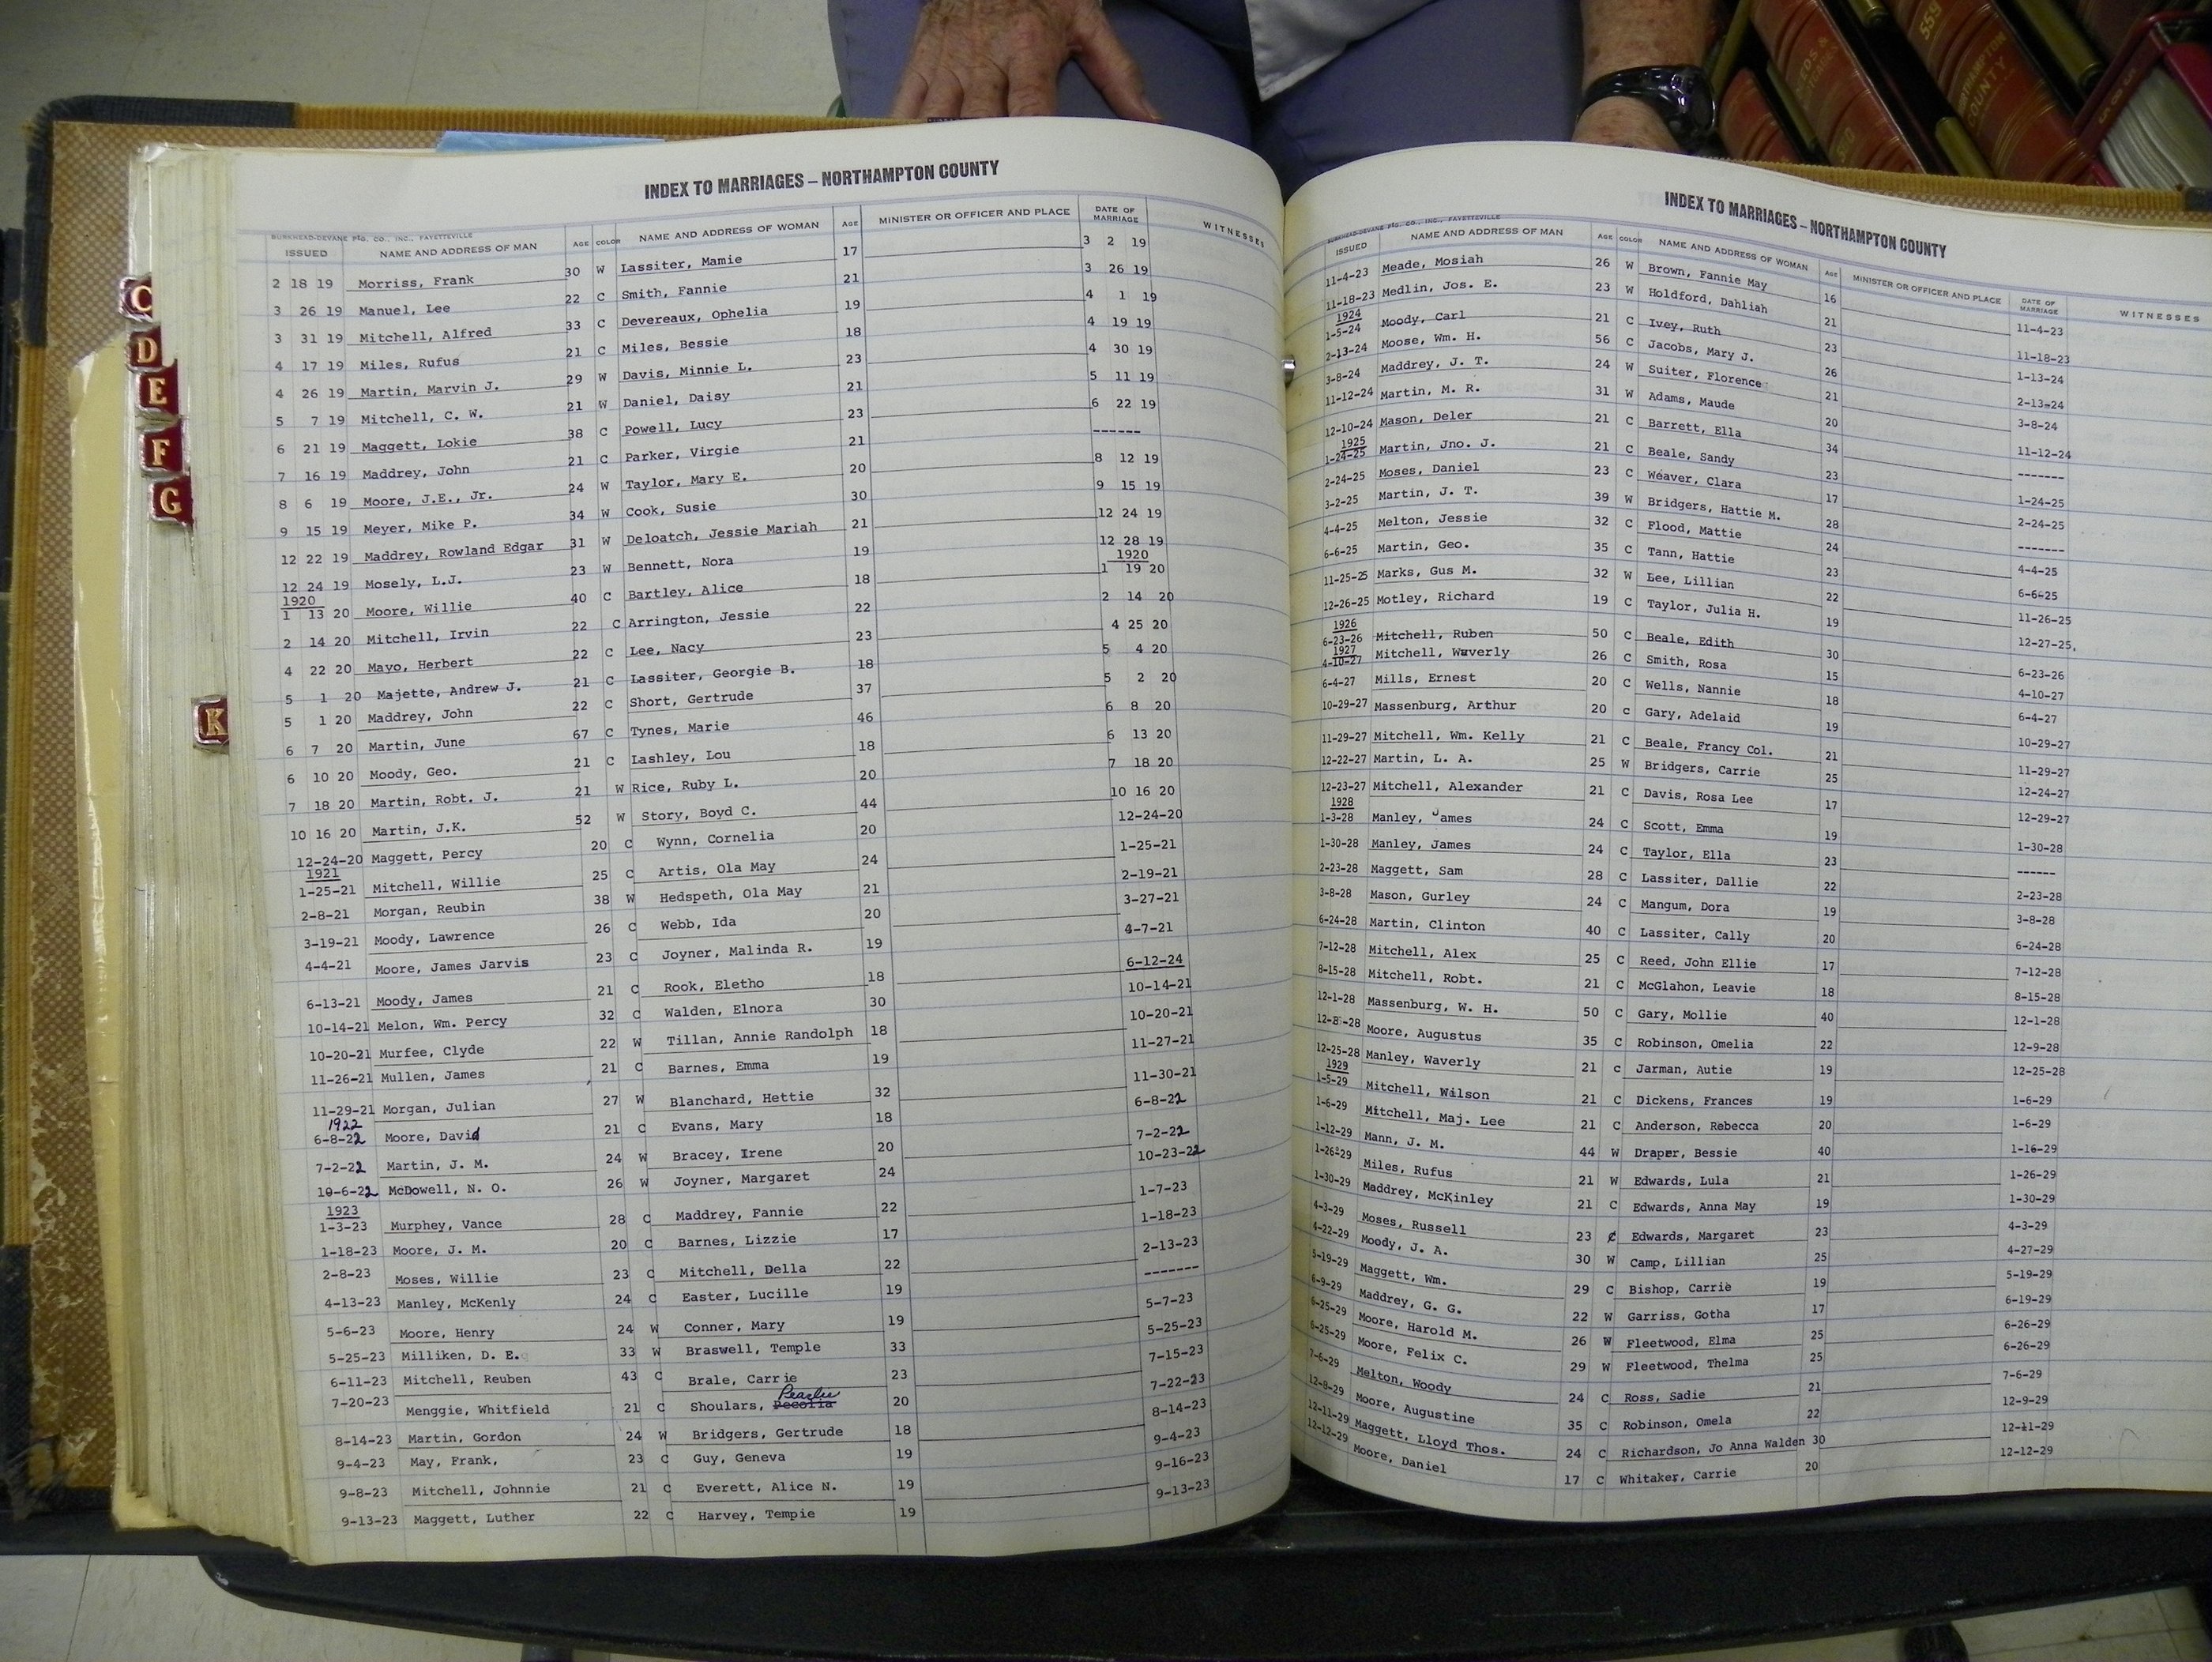 C
D
E
F
G
K
INDEX TO MARRIAGES – NORTHAMPTON COUNTY
BURKHEAD-DEVANE PTG. CO., INC., FAYETTEVILLE
ISSUED NAME AND ADDRESS OF MAN AGE COLOR NAME AND ADDRESS OF WOMAN AGE MINISTER OR OFFICER AND PLACE DATE OF MARRIAGE WITNESSES
2 18 19 Morriss, Frank 30 W Lassiter, Mamie 17 3 2 19
3 26 19 Manuel, Lee 22 C Smith, Fannie 21 3 26 19
3 31 19 Mitchell, Alfred 33 C Devereaux, Ophelia 19 4 1 19
4 17 19 Miles, Rufus 21 C Miles, Bessie 18 4 19 19
4 26 19 Martin, Marvin J. 29 W Davis, Minnie L. 23 4 30 19
5 7 19 Mitchell, C. W. 21 W Daniel, Daisy 21 5 11 19
6 21 19 Maggett, Lokie 38 C Powell, Lucy 23 6 22 19
7 16 19 Maddrey, John 21 C Parker, Virgie 21 ------
8 6 19 Moore, J.E., Jr. 24 W Taylor, Mary E. 20 8 12 19
9 15 19 Meyer, Mike P. 34 W Cook, Susie 30 9 15 19
12 22 19 Maddrey, Rowland Edgar 31 W Deloatch, Jessie Mariah 21 12 24 19
12 24 19 Mosely, L.J. 23 W Bennett, Nora 19 12 28 19
1920 1920
1 13 20 Moore, Willie 40 C Bartley, Alice 18 1 19 20
2 14 20 Mitchell, Irvin 22 C Arrington, Jessie 22 2 14 20
4 22 20 Mayo, Herbert 22 C Lee, Nacy 23 4 25 20
5 1 20 Majette, Andrew J. 21 C Lassiter, Georgie B. 18 5 4 20
5 1 20 Maddrey, John 22 C Short, Gertrude 37 5 2 20
6 7 20 Martin, June 67 C Tynes, Marie 46 6 8 20
6 10 20 Moody, Geo. 21 C Lashley, Lou 18 6 13 20
7 18 20 Martin, Robt. J. 21 W Rice, Ruby L. 20 7 18 20
10 16 20 Martin, J.K. 52 W Story, Boyd C. 44 10 16 20
12-24-20 Maggett, Percy 20 C Wynn, Cornelia 20 12-24-20
1921
1-25-21 Mitchell, Willie 25 C Artis, Ola May 24 1-25-21
2-8-21 Morgan, Reubin 38 W Hedspeth, Ola May 21 2-19-21
3-19-21 Moody, Lawrence 26 C Webb, Ida 20 3-27-21
4-4-21 Moore, James Jarvis 23 C Joyner, Malinda R. 19 4-7-21
6-13-21 Moody, James 21 C Rook, Eletho 18 6-12-24
10-14-21 Melon, Wm. Percy 32 C Walden, Elnora 30 10-14-21
10-20-21 Murfee, Clyde 22 W Tillan, Annie Randolph 18 10-20-21
11-26-21 Mullen, James 21 C Barnes, Emma 19 11-27-21
11-29-21 Morgan, Julian 27 W Blanchard, Hettie 32 11-30-21
1922
6-8-22 Moore, David 21 C Evans, Mary 18 6-8-22
7-2-22 Martin, J. M. 24 W Bracey, Irene 20 7-2-22
10-6-22 McDowell, N. O. 26 W Joyner, Margaret 24 10-23-22
1923
1-3-23 Murphey, Vance 28 C Maddrey, Fannie 22 1-7-23
1-18-23 Moore, J. M. 20 C Barnes, Lizzie 17 1-18-23
2-8-23 Moses, Willie 23 C Mitchell, Della 22 2-13-23
4-13-23 Manley, McKenly 24 C Easter, Lucille 19 -------
5-6-23 Moore, Henry 24 W Conner, Mary 19 5-7-23
5-25-23 Milliken, D. E. 33 W Braswell, Temple 33 5-25-23
6-11-23 Mitchell, Reuben 43 C Brale, Carrie 23 7-15-23
7-20-23 Menggie, Whitfield 21 C Shoulars, 20 7-22-23
8-14-23 Martin, Gordon 24 W Bridgers, Gertrude 18 8-14-23
9-4-23 May, Frank, 23 C Guy, Geneva 19 9-4-23
9-8-23 Mitchell, Johnnie 21 C Everett, Alice N. 19 9-16-23
9-13-23 Maggett, Luther 22 C Harvey, Tempie 19 9-13-23
INDEX TO MARRIAGES – NORTHAMPTON COUNTY
BURKHEAD-DEVANE PTG. CO., INC., FAYETTEVILLE
ISSUED NAME AND ADDRESS OF MAN AGE COLOR NAME AND ADDRESS OF WOMAN AGE MINISTER OR OFFICER AND PLACE DATE OF MARRIAGE WITNESSES
11-4-23 Meade, Mosiah 26 W Brown, Fannie May 16 11-4-23
11-18-23 Medlin, Jos. E. 23 W Holdford, Dahliah 21 11-18-23
1924
1-5-24 Moody, Carl 21 C Ivey, Ruth 23 1-13-24
2-13-24 Moose, Wm. H. 56 C Jacobs, Mary J. 26 2-13-24
3-8-24 Maddrey, J. T. 24 W Suiter, Florence 21 3-8-24
11-12-24 Martin, M. R. 31 W Adams, Maude 20 11-12-24
12-10-24 Mason, Deler 21 C Barrett, Ella 34 -------
1925
1-24-25 Martin, Jno. J. 21 C Beale, Sandy 23 1-24-25
2-24-25 Moses, Daniel 23 C Weaver, Clara 17 2-24-25
3-2-25 Martin, J. T. 39 W Bridgers, Hattie M. 28 -------
4-4-25 Melton, Jessie 32 C Flood, Mattie 24 4-4-25
6-6-25 Martin, Geo. 35 C Tann, Hattie 23 6-6-25
11-25-25 Marks, Gus M. 32 W Lee, Lillian 22 11-26-25
12-26-25 Motley, Richard 19 C Taylor, Julia H. 19 12-27-25,
1926
6-23-26 Mitchell, Ruben 50 C Beale, Edith 30 6-23-26
1927
4-10-27 Mitchell, Waverly 26 C Smith, Rosa 15 4-10-27
6-4-27 Mills, Ernest 20 C Wells, Nannie 18 6-4-27
10-29-27 Massenburg, Arthur 20 c Gary, Adelaid 19 10-29-27
11-29-27 Mitchell, Wm. Kelly 21 C Beale, Francy Col. 21 11-29-27
12-22-27 Martin, L. A. 25 W Bridgers, Carrie 25 12-24-27
12-23-27 Mitchell, Alexander 21 C Davis, Rosa Lee 17 12-29-27
1928
1-3-28 Manley, James 24 C Scott, Emma 19 1-30-28
1-30-28 Manley, James 24 C Taylor, Ella 23 ------
2-23-28 Maggett, Sam 28 C Lassiter, Dallie 22 2-23-28
3-8-28 Mason, Gurley 24 C Mangum, Dora 19 3-8-28
6-24-28 Martin, Clinton 40 C Lassiter, Cally 20 6-24-28
7-12-28 Mitchell, Alex 25 C Reed, John Ellie 17 7-12-28
8-15-28 Mitchell, Robt. 21 C McGlahon, Leavie 18 8-15-28
12-1-28 Massenburg, W. H. 50 C Gary, Mollie 40 12-1-28
12-8-28 Moore, Augustus 35 C Robinson, Omelia 22 12-9-28
12-25-28 Manley, Waverly 21 C Jarman, Autie 19 12-25-28
1929
1-5-29 Mitchell, Wilson 21 C Dickens, Frances 19 1-6-29
1-6-29 Mitchell, Maj. Lee 21 C Anderson, Rebecca 20 1-6-29
1-12-29 Mann, J. M. 44 W Draper, Bessie 40 1-16-29
1-26-29 Miles, Rufus 21 W Edwards, Lula 21 1-26-29
1-30-29 Maddrey, McKinley 21 C Edwards, Anna May 19 1-30-29
4-3-29 Moses, Russell 23 C Edwards, Margaret 23 4-3-29
4-22-29 Moody, J. A. 30 W Camp, Lillian 25 4-27-29
5-19-29 Maggett, Wm. 29 C Bishop, Carrie 19 5-19-29
6-9-29 Maddrey, G. G. 22 W Garriss, Gotha 17 6-19-29
6-25-29 Moore, Harold M. 26 W Fleetwood, Elma 25 6-26-29
6-25-29 Moore, Felix C. 29 W Fleetwood, Thelma 25 6-26-29
7-6-29 Melton, Woody 24 C Ross, Sadie 21 7-6-29
12-8-29 Moore, Augustine 35 C Robinson, Omela 22 12-9-29
12-11-29 Maggett, Lloyd Thos. 24 C Richardson, Jo Anna Walden 30 12-11-29
12-12-29 Moore, Daniel 17 C Whitaker, Carrie 20 12-12-29
559
NORTHAMPTON COUNTY